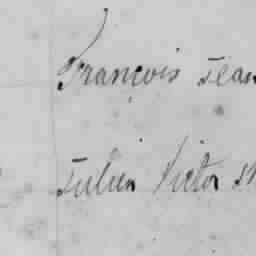 François Jean
Julien Victor